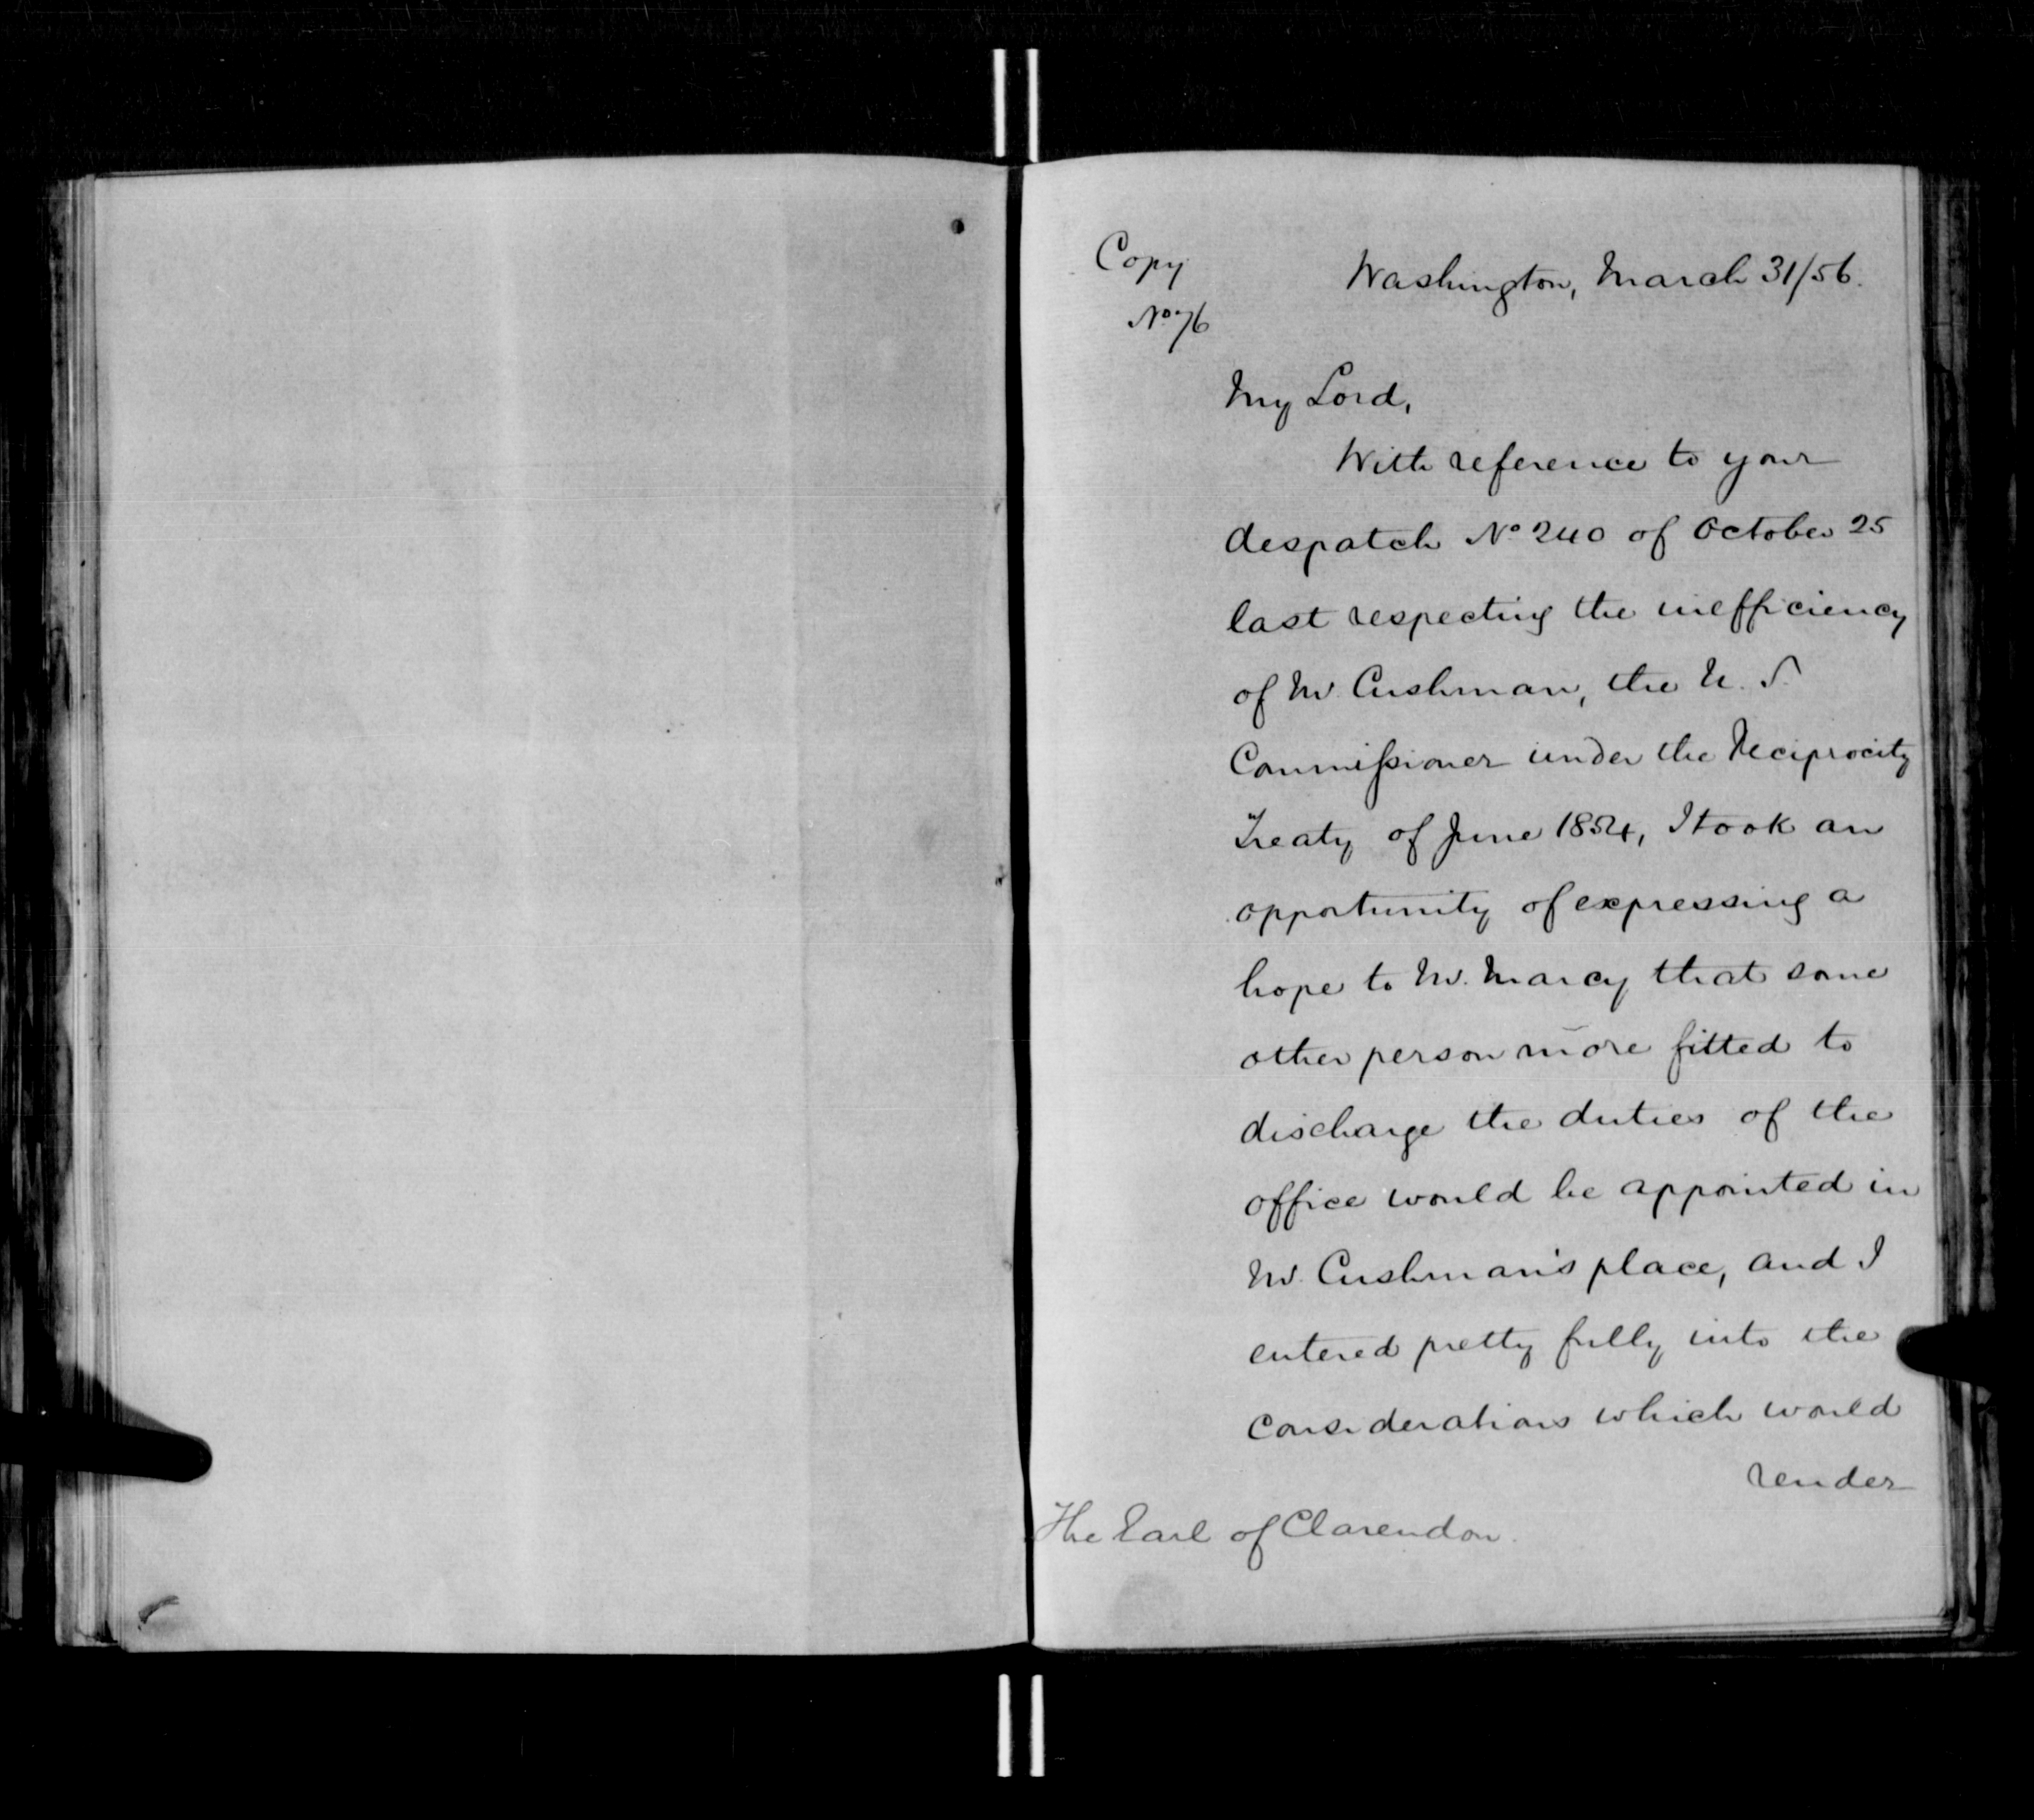 Copy
Washington, March 31/56.
No 76
My Lord,
With reference to your
despatch No 240 of October 25
last respecting the inefficiency
of Mr. Cushman, the U. S.
Commissioner under the Reciprocity
Treaty of June 1854, I took an
opportunity of expressing a
hope to Mr. Marcy that some
other person more fitted to
discharge the duties of the
office would be appointed in
Mr. Cushman's place, and I
entered pretty fully into the
considerations which would
render
The Earl of Clarendon.